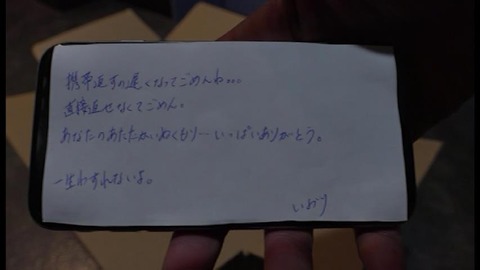 携帯返すの遅くなってごめんね…。
直接返せなくてごめん。
あなたのあたたかいぬくもり…いっぱいありがとう。
一生わすれないよ。
いおり